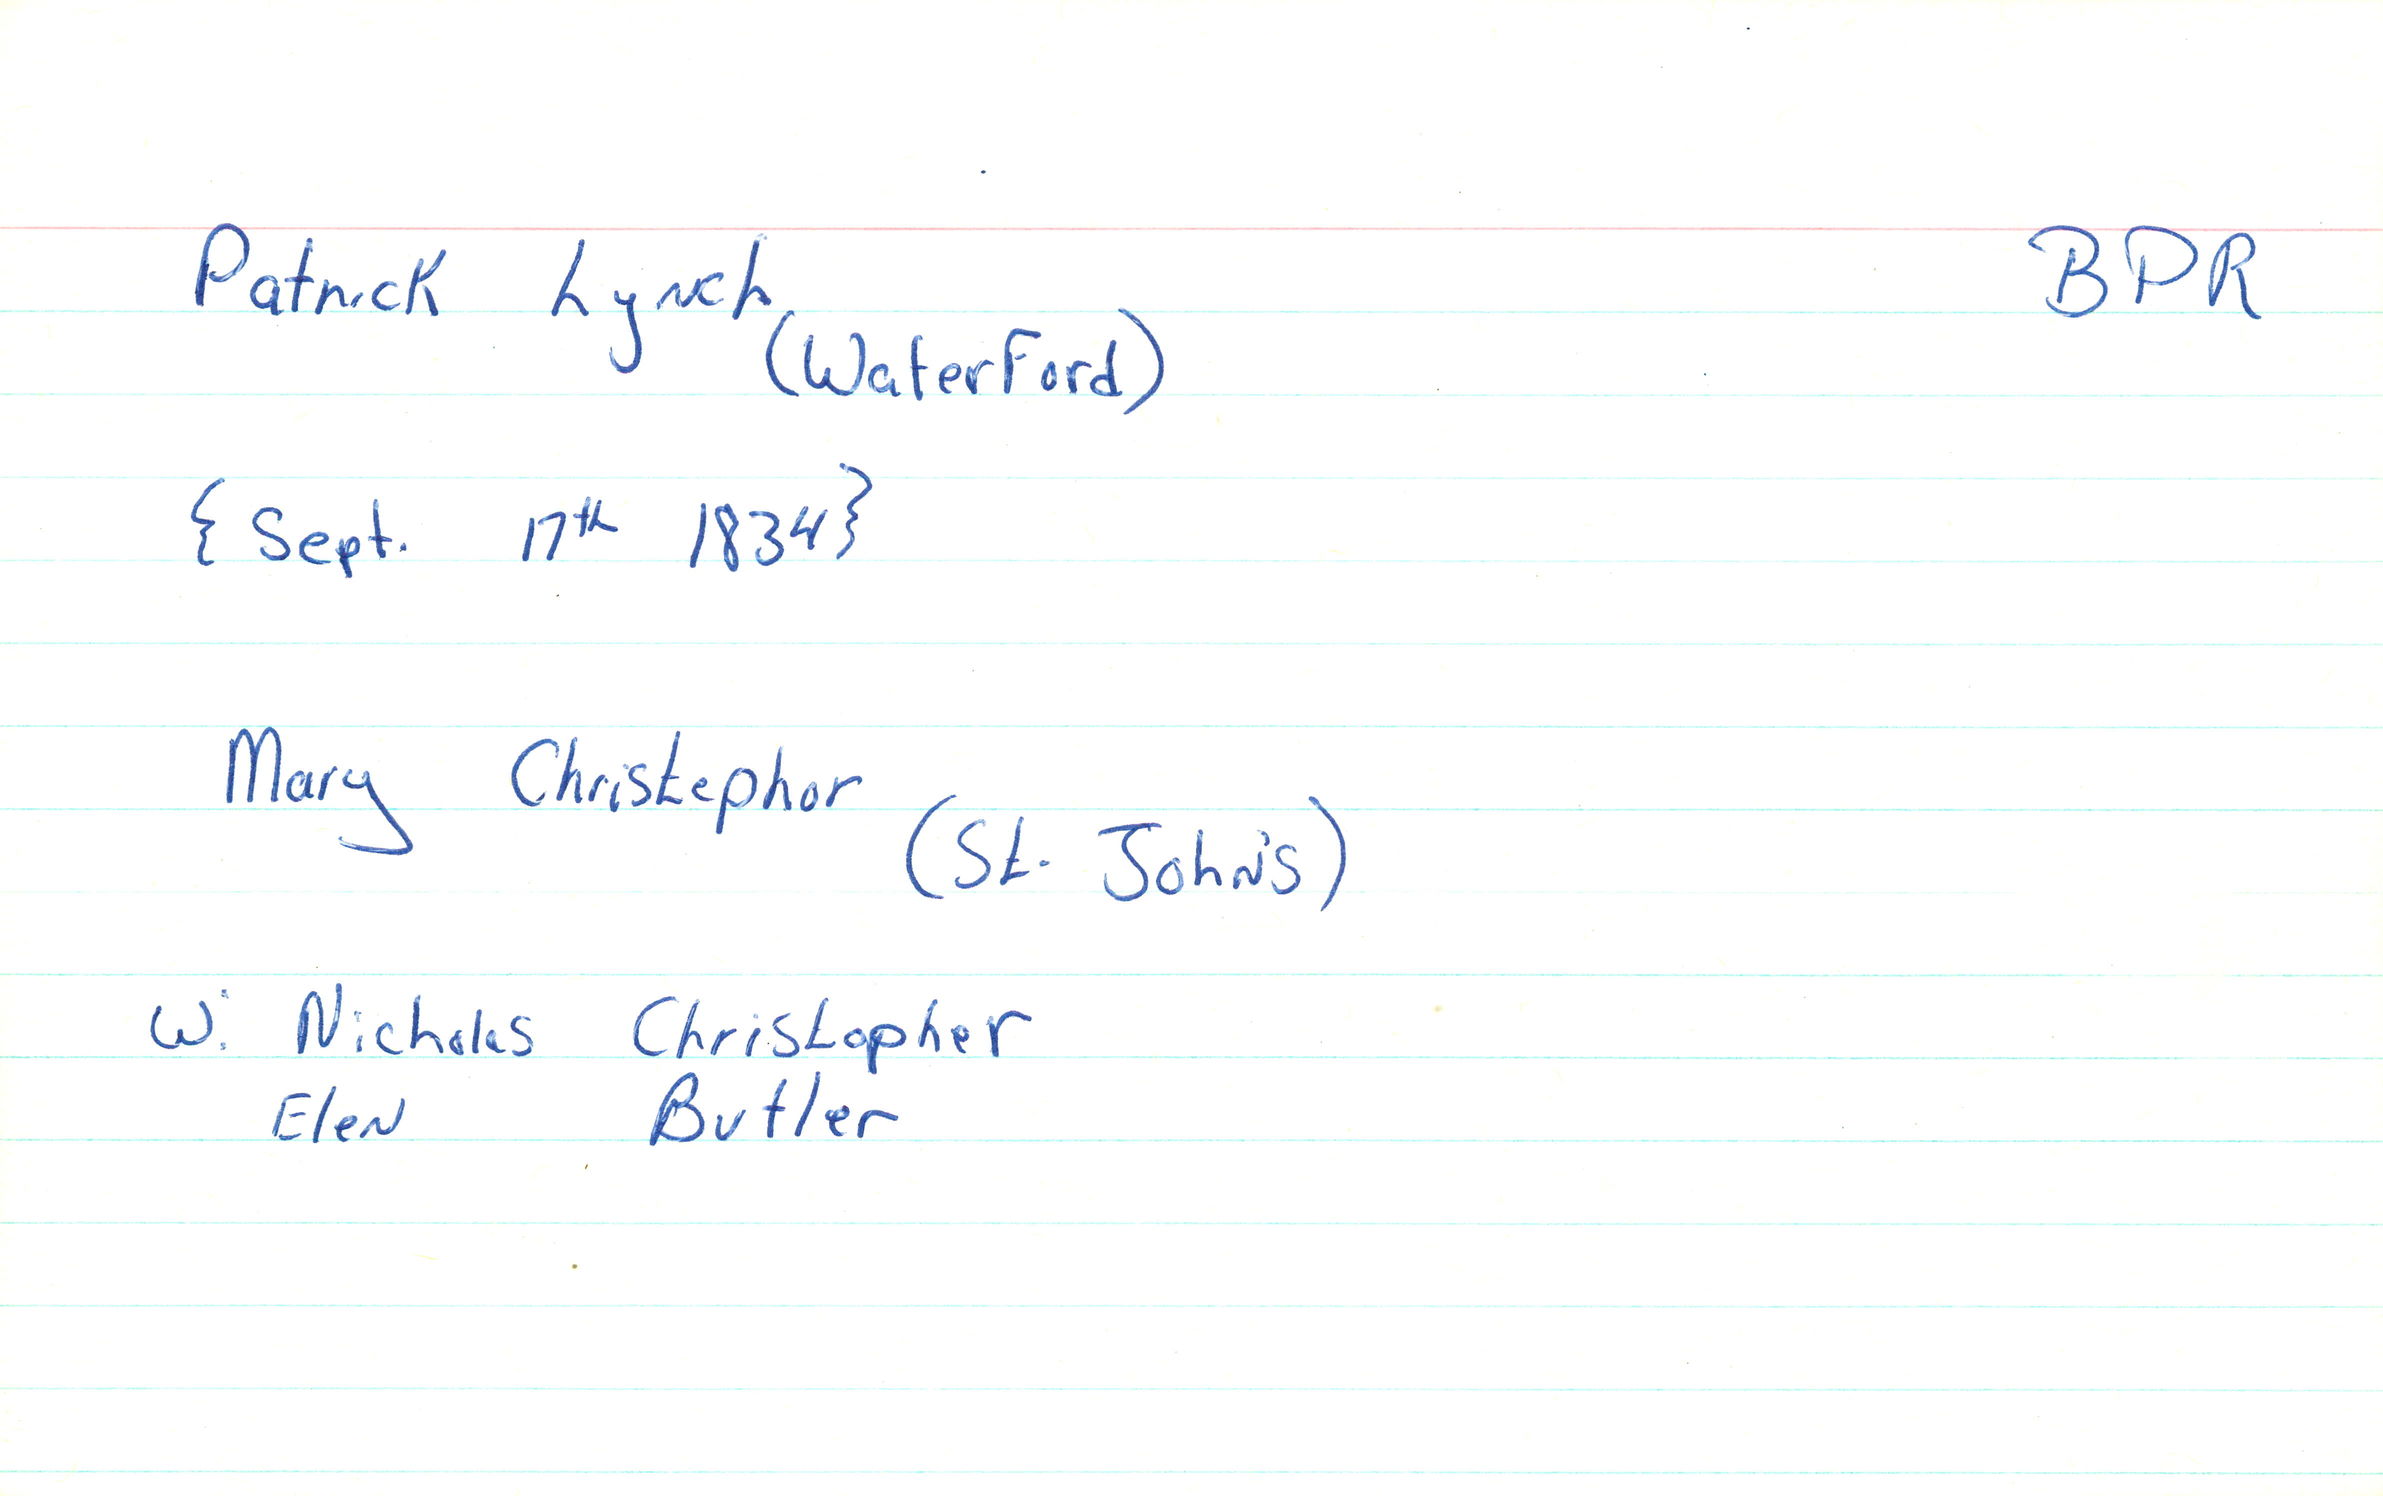 Patrick Lynch BPR
(Waterford)
{Sept. 17th 1834}
Mary Christephor
(St. John's)
W: Nicholas Christopher
Elen Butler